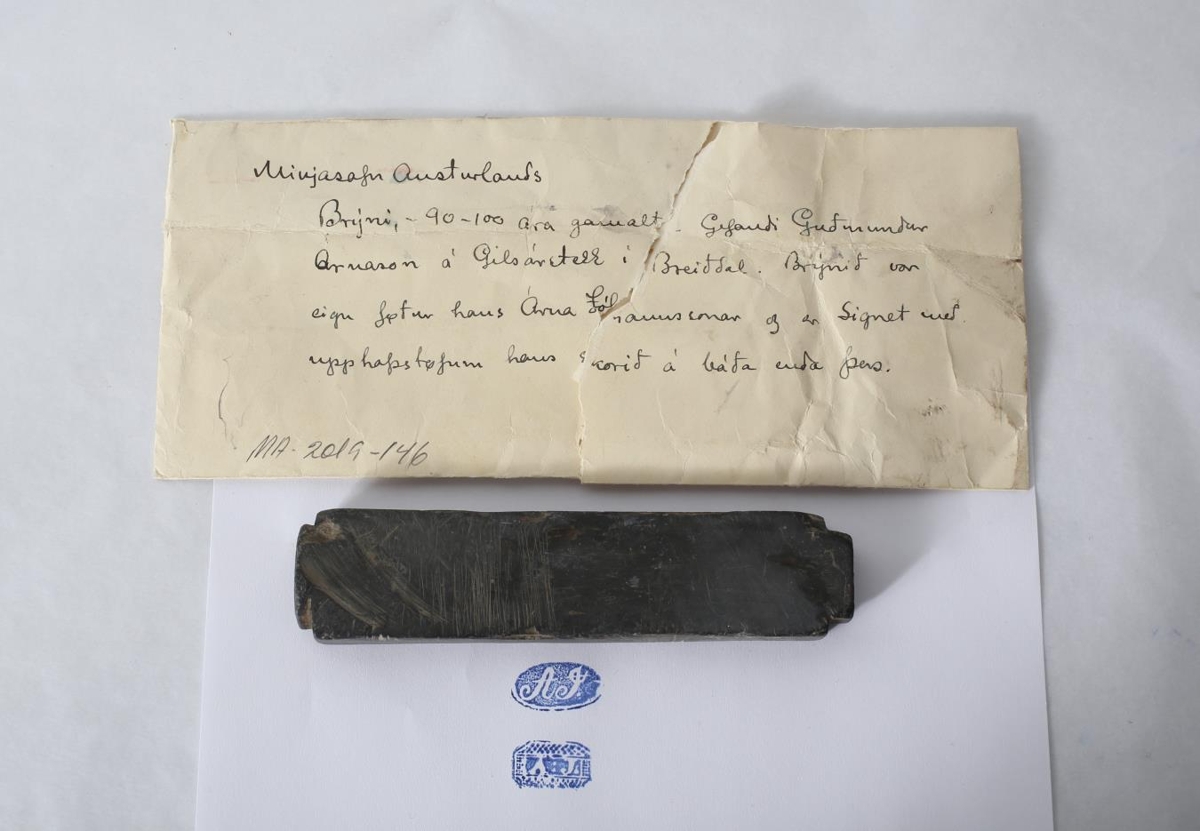 Minjasafn Austurlands
Brýni, - 90-100 ára gamalt. Gefandi Guðmundur
Árnason á Gilsárstekk í Breiðdal. Brýnið var
eign föður hans Árna Jóhannssonar og er Signet með
upphafsstöfum hans skorið á báða enda þess.
MA-2019-146
AJ.